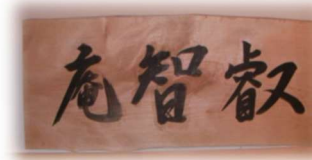 庵智叡